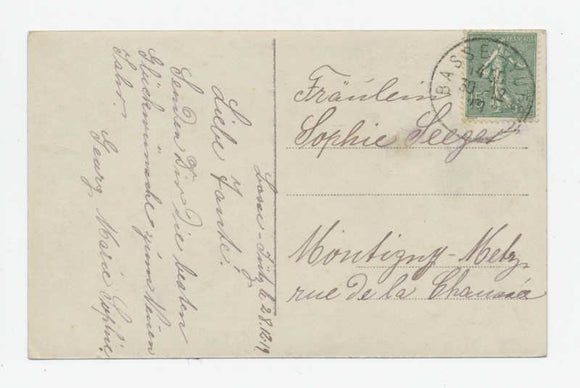 Basse-Yutz le 28.12.19
Liebe Tante.
Senden Dir die besten
Glückwünsche zum Neuen
Jahr.
Georg Marie Sophie
Fräulein
Sophie Seeger
Montigny-Metz,
rue de la
BASSE